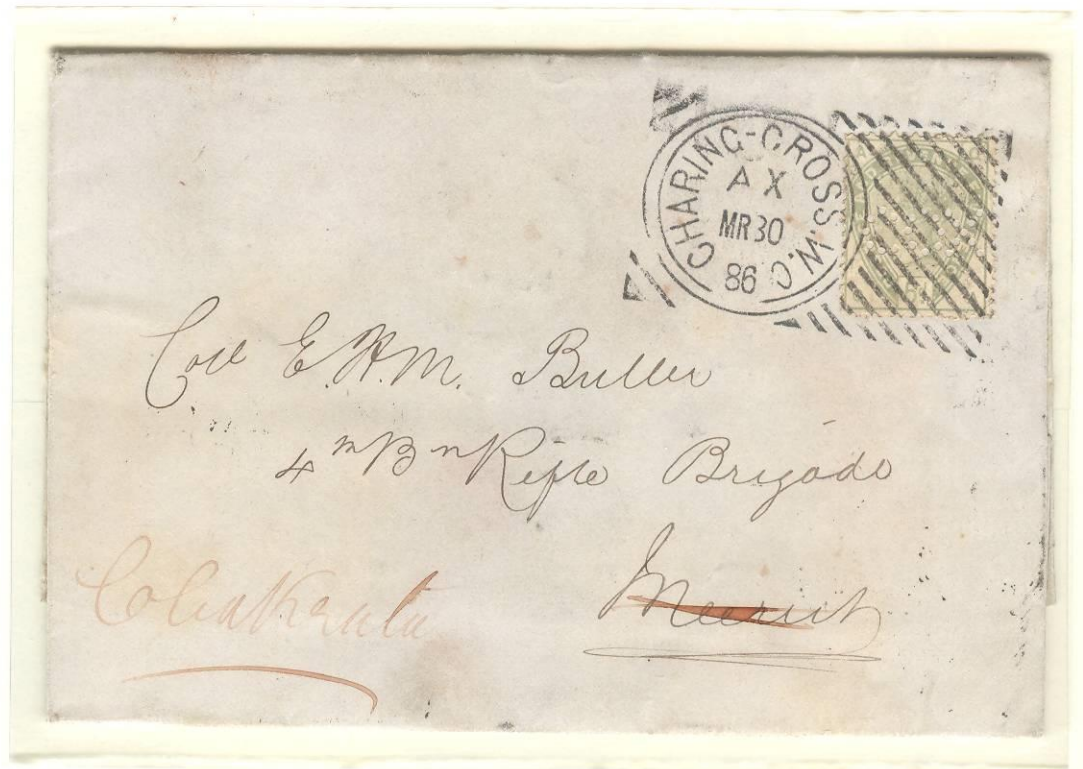 CHARING-CROSS.W.C
A X
MR 30
86
Coll E.H.M. Buller
4th Bn Rifle Brigade
Meerut
Chakrata